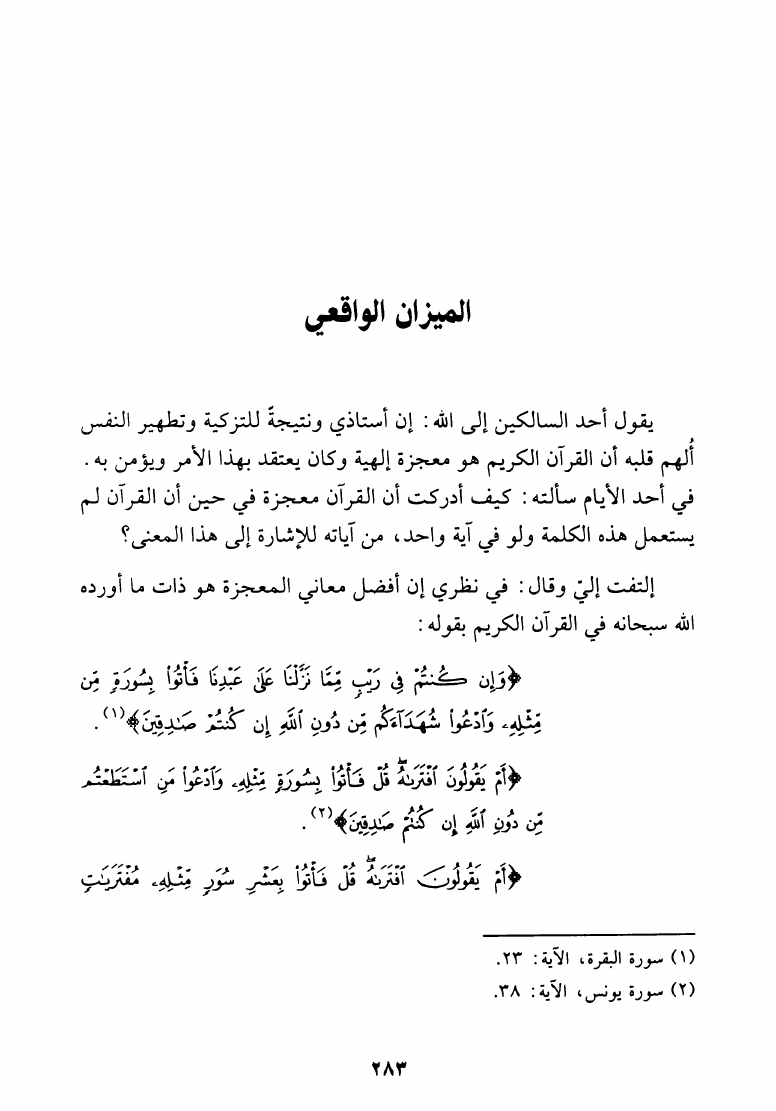 الميزان الواقعي
يقول أحد السالكين إلى الله: إن أستاذي ونتيجةً للتزكية وتطهير النفس
أُلهم قلبه أن القرآن الكريم هو معجزة إلهية وكان يعتقد بهذا الأمر ويؤمن به.
في أحد الأيام سألته: كيف أدركت أن القرآن معجزة في حين أن القرآن لم
يستعمل هذه الكلمة ولو في آية واحد، من آياته للإشارة إلى هذا المعنى؟
إلتفت إليّ وقال: في نظري إن أفضل معاني المعجزة هو ذات ما أورده
الله سبحانه في القرآن الكريم بقوله:
﴿وَإِن كُنتُمْ فِى رَيْبٍ مِّمَّا نَزَّلْنَا عَلَىٰ عَبْدِنَا فَأْتُوا۟ بِسُورَةٍ مِّن
مِّثْلِهِۦ وَٱدْعُوا۟ شُهَدَآءَكُم مِّن دُونِ ٱللَّهِ إِن كُنتُمْ صَـٰدِقِينَ﴾(١).
﴿أَمْ يَقُولُونَ ٱفْتَرَىٰهُ ۖ قُلْ فَأْتُوا۟ بِسُورَةٍ مِّثْلِهِۦ وَٱدْعُوا۟ مَنِ ٱسْتَطَعْتُم
مِّن دُونِ ٱللَّهِ إِن كُنتُمْ صَـٰدِقِينَ﴾(٢).
﴿أَمْ يَقُولُونَ ٱفْتَرَىٰهُ ۖ قُلْ فَأْتُوا۟ بِعَشْرِ سُوَرٍ مِّثْلِهِۦ مُفْتَرَيَـٰتٍ
(١) سورة البقرة، الآية: ٢٣.
(٢) سورة يونس، الآية: ٣٨.
٢٨٣